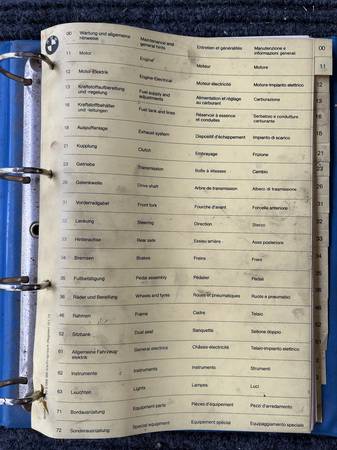 BMW
00 Wartung und allgemeine Hinweise Maintenance and general hints Entretien et généralités Manutenzione e informazioni generali 00
11 Motor Engine Moteur Motore 11
12 Motor-Elektrik Engine-Electrical Moteur électricité Motore-Impianto elettrico 12
13 Kraftstoffaufbereitung und -regelung Fuel supply and adjustments Alimentation et réglage au carburant Carburazione 13
16 Kraftstoffbehälter und -leitungen Fuel tank and lines Réservoir à essence et conduites Serbatoio e condutture carburante
18 Auspuffanlage Exhaust system Dispositif d'échappement Impianto di scarico
21 Kupplung Clutch Embrayage Frizione 21
23 Getriebe Transmission Boîte à vitesses Cambio 23
26 Gelenkwelle Drive shaft Arbre de transmission Albero di trasmissione
31 Vorderradgabel Front fork Fourche d'avant Forcella anteriore
32 Lenkung Steering Direction Sterzo
33 Hinterachse Rear axle Essieu arrière Asse posteriore
34 Bremsen Brakes Freins Freni
35 Fußbetätigung Pedal assembly Pédalier Pedali
36 Räder und Bereifung Wheels and tyres Roues et pneumatiques Ruote e pneumatici
46 Rahmen Frame Cadre Telaio
52 Sitzbank Dual seat Banquette Sellone doppio
61 Allgemeine Fahrzeug-elektrik General electrics Châssis-électricité Telaio-Impianto elettrico
62 Instrumente Instruments Instruments Strumenti
63 Leuchten Lights Lampes Luci
71 Bordausrüstung Equipment parts Pièces d'équipement Pezzi d'arredamento
72 Sonderausrüstung Special equipment Equipement spécial Equipaggiamento speciale